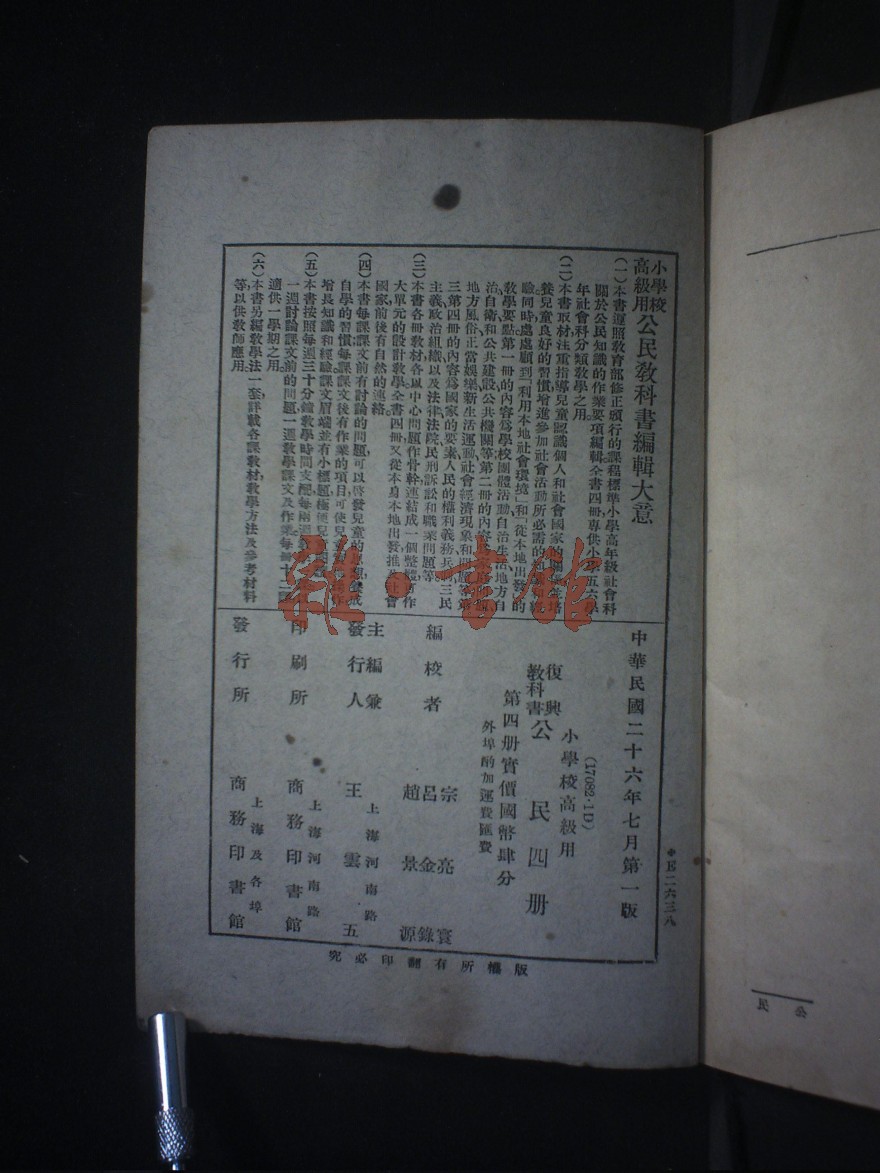 小學校
高級用 公民教科書編輯大意
（一）本書遵照教育部修正頒行的課程標準小學高年級社會科
關於公民知識的作業要項編輯全書四冊專供小學五六學
年社會科分類教學之用。
（二）本書取材注重指導兒童認識個人和社會國家的關係並培
養兒童良好的習慣增進參加社會活動所必需的知識和經
驗同時處處顧到「利用本地社會環境」和「從本地出發」的
教學要點第一冊的內容爲學校團體活動自治生活地方自
治自衛和公共建設公共機關等第二冊的內容
地方風俗正當娛樂新生活運動社會經濟現象和問題等第
三第四冊的內容爲國家的要素人民的權利義務兵役三民
主義政治組織以及法律法院民刑訴訟和職業問題等。
（三）本書各冊教材各以中心問題作骨幹連結成一個整體可作
大單元的設計教學全書四冊又從本身本地出發推及社會
國家前後有自然的連絡。
（四）本書每課課文前有討論的問題可以啓發兒童的思想養成
自學的習慣每課課文後有作業的項目可使兒童
增長知識和經驗課文眉端並有小標題極便兒童
（五）本書按照每週三十分鐘教學時間支配每兩週教
一週討論課文前的問題一週教學課文及作業每冊十二課
適供一學期之用。
（六）本書另編教學法一套詳載各課教材教學方法及參考材料
等以供教師應用。
雜·書館
中華民國二十六年七月第一版
(17082·1D)
小學校高級用
復興
教科書 公民四册
第四册實價國幣肆分
外埠酌加運費匯費
編校者 宗亮寰
呂金錄
趙景源
主編兼
發行人 王雲五
上海河南路
印刷所 商務印書館
上海河南路
發行所 商務印書館
上海及各埠
版權所有翻印必究
＊E二六三八
公民